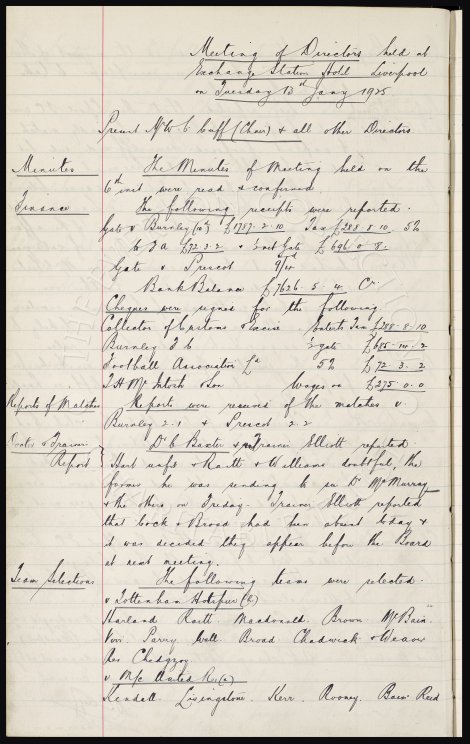 Meeting of Directors held at
Exchange Station Hotel Liverpool
on Tuesday 13th Jany 1925
Present Mr W. C. Cuff (Chair) & all other Directors
Minutes The Minutes of Meeting held on the
6th inst were read & confirmed
Finance The following receipts were reported.
Gate v Burnley £1787. 2. 10 Tax £288. 8. 10 5%
F A £72. 3. 2 & ½ net Gate £696. 0. 8.
Gate v Prescot
Bank Balance £7626. 5. 4. Cr.
Cheques were signed for the following
Collector of Customs & Excise Entertts Tax £288-8-10
Burnley F C ½ gate £685-10-2
Football Association Ld 5% £72. 3. 2
T H McIntosh Wages £275. 0. 0
Reports of Matches Reports were received of the matches v
Burnley 2-1 & Prescot 2-2
Doctor & Trainer
Report Dr C Baxter & Trainer Elliott reported
Hart unfit & Raitt & Williams doubtful, the
former he was sending to see Dr McMurray
& the others on Friday. Trainer Elliott reported
that Cock & Broad had been absent today &
it was decided they appear before the Board
at next meeting.
Team Selections The following teams were selected.
v Tottenham Hotspur
Harland Raitt Macdonald. Brown McBain
Parry Broad Chadwick & Weaver
Res Chedgzoy
v M/c United Res
Kendall. Livingstone. Kerr. Rooney. Bain Reid